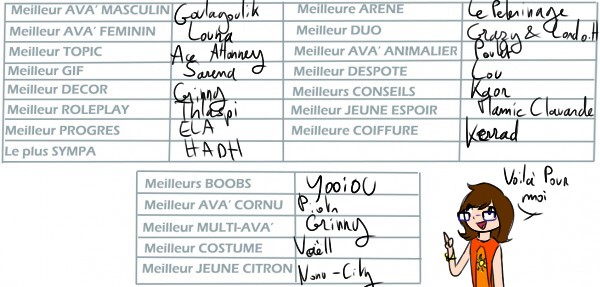 Meilleur AVA’ MASCULIN Goulagoulik
Meilleur AVA’ FEMININ Louna
Meilleur TOPIC Ace Attorney
Meilleur GIF Sarend
Meilleur DECOR Grinny
Meilleur ROLEPLAY Thlaspi
Meilleur PROGRES ELA
Le plus SYMPA HADH
Meilleure ARENE Le Pelerinage
Meilleur DUO Crazy &
Meilleur AVA’ ANIMALIER Poulet
Meilleur DESPOTE Lou
Meilleurs CONSEILS Kaor
Meilleur JEUNE ESPOIR Mamie Clavande
Meilleure COIFFURE Kerrad
Meilleurs BOOBS YooiOU
Meilleur AVA’ CORNU
Meilleur MULTI-AVA’ Grinny
Meilleur COSTUME Vaëll
Meilleur JEUNE CITRON Nono-City
Voilà Pour
moi